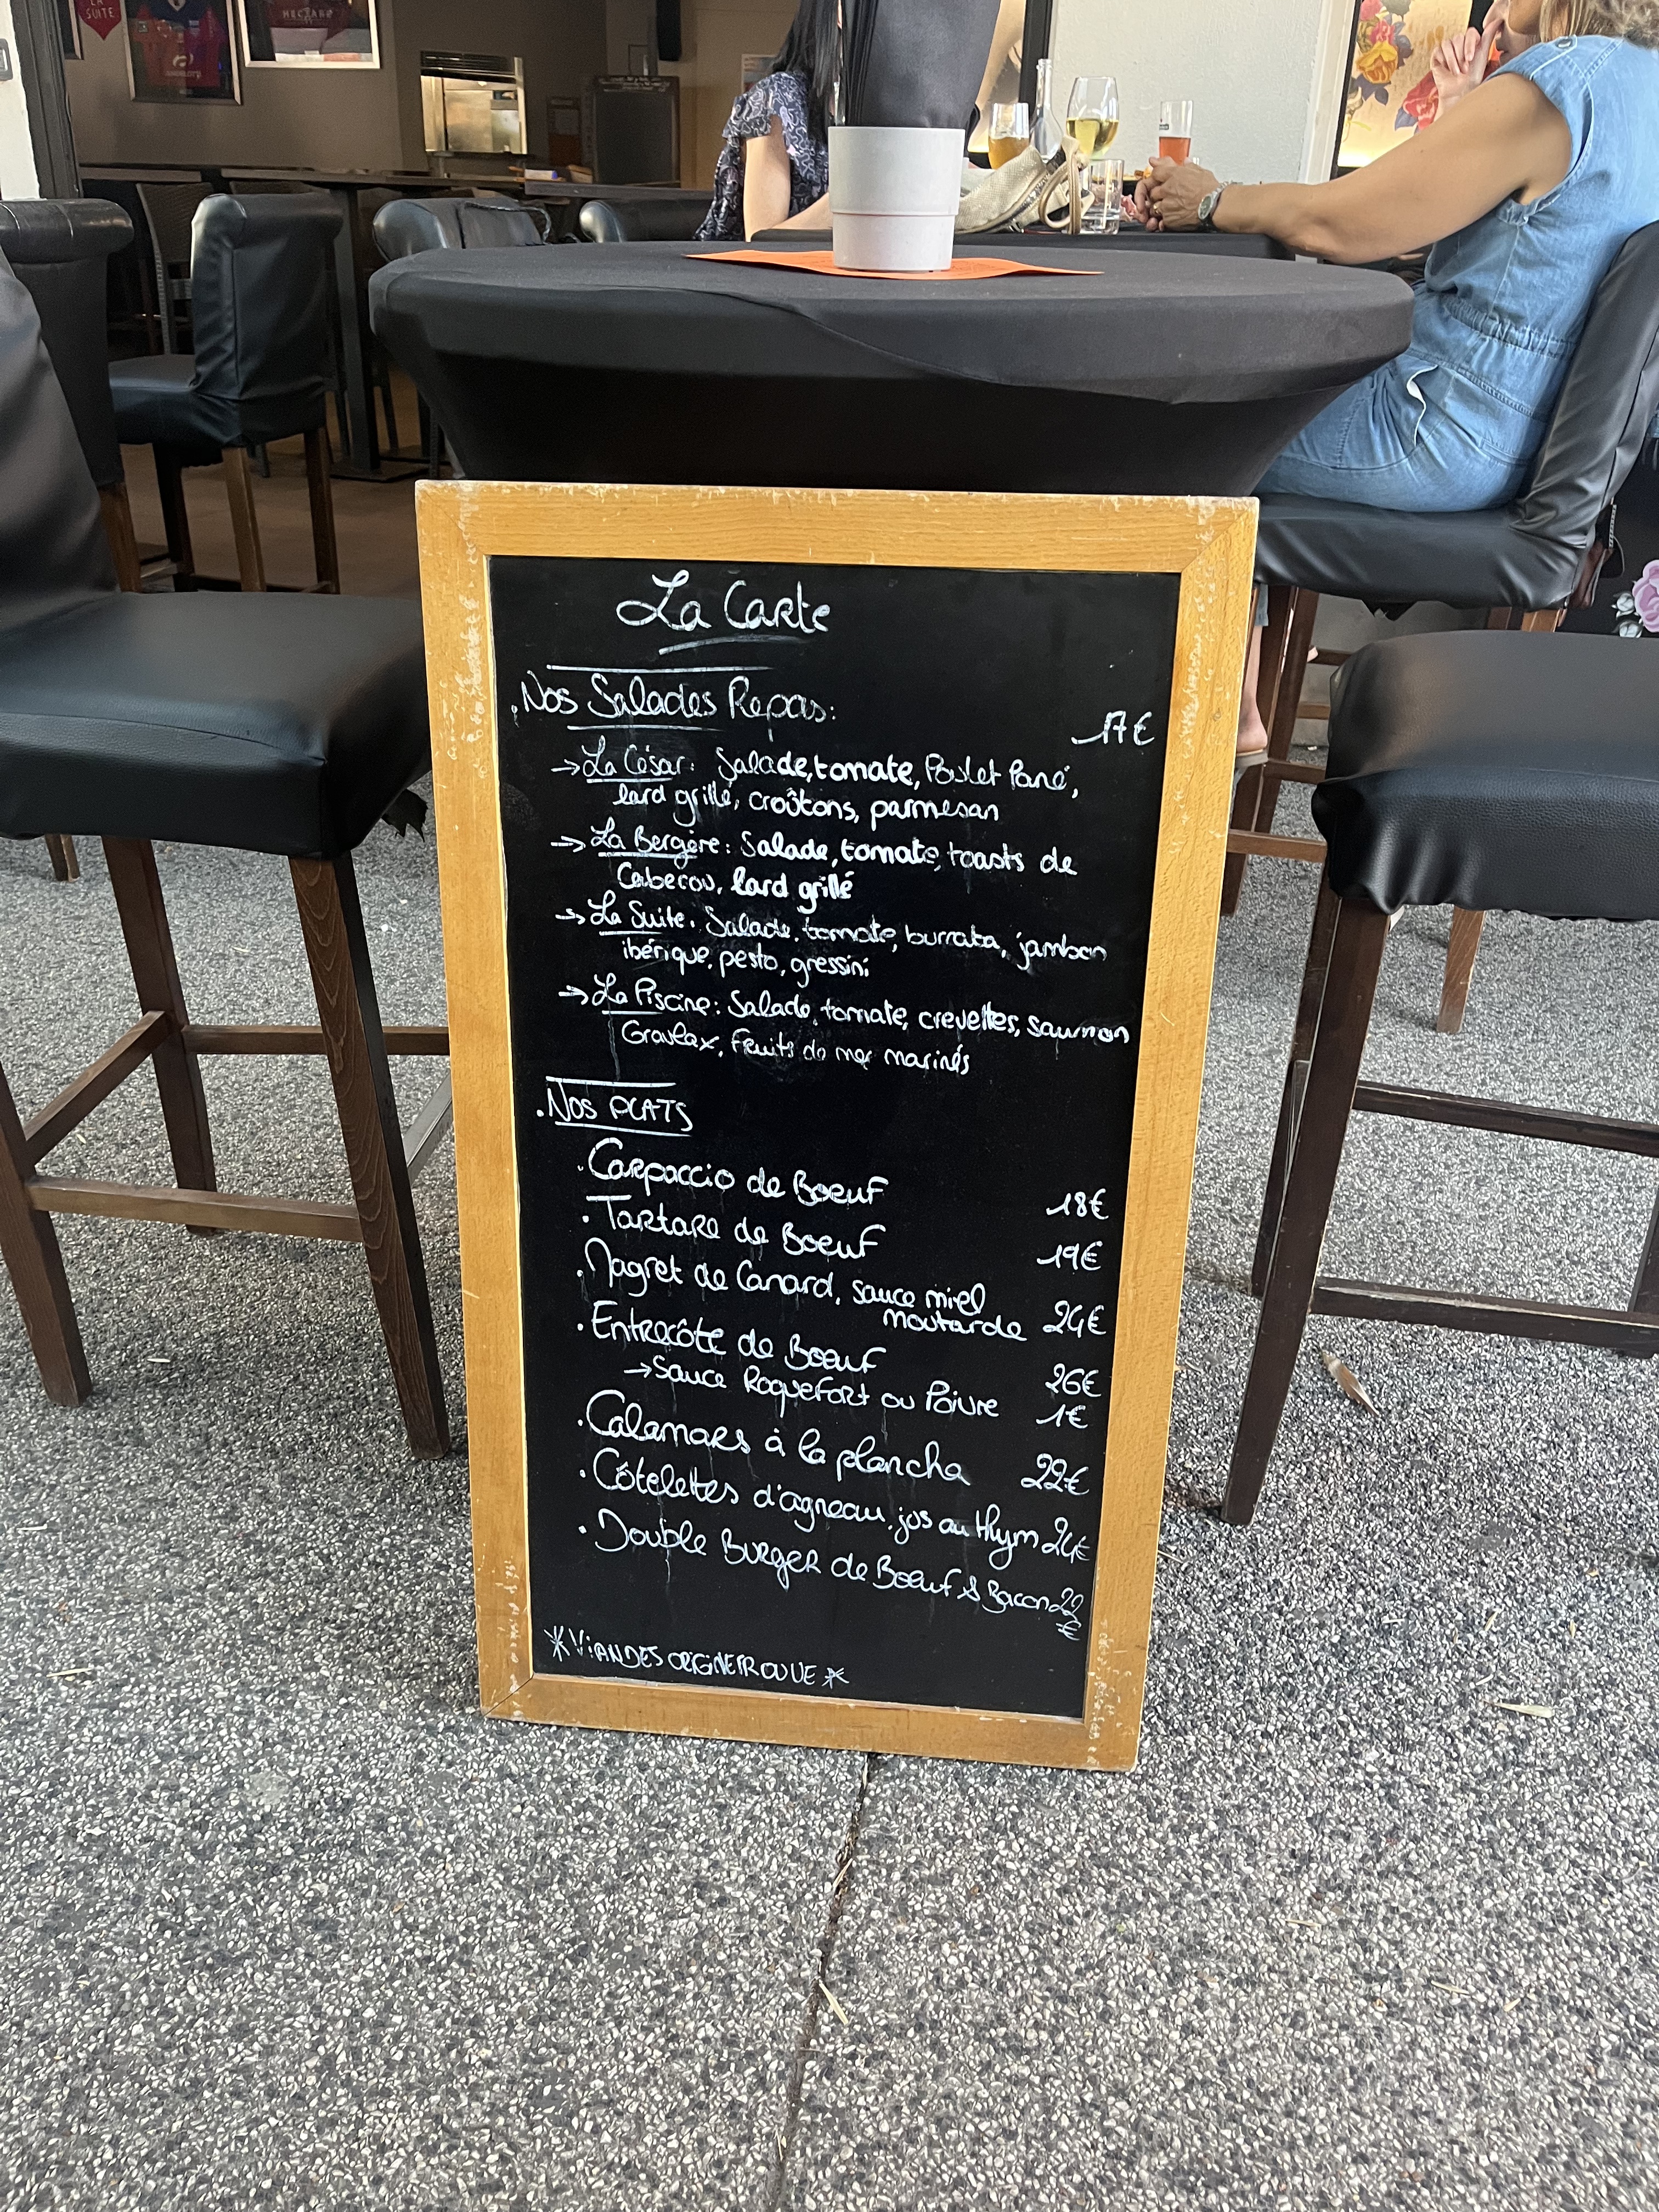 LA SUITE
La Carte
. Nos Salades Repas:
17€
→ La César: Salade, tomate, Poulet Pané,
lard grillé, croûtons, parmesan
→ La Bergère: Salade, tomate, toasts de
Cabecou, lard grillé
→ La Suite. Salade, tomate, burrata, jambon
ibérique, pesto, gressini
→ La Piscine: Salade, tomate, crevettes, saumon
Gravlax, fruits de mer marinés
. NOS PLATS
. Carpaccio de Boeuf 18€
. Tartare de Boeuf 19€
. Magret de Canard, sauce miel
moutarde 24€
. Entrecôte de Boeuf 26€
→ Sauce Roquefort ou Poivre 1€
. Calamars à la plancha 22€
. Côtelettes d'agneau, jus au thym 24€
. Double Burger de Boeuf & Bacon 22
€
* VIANDES ORIGINE FR OU UE *